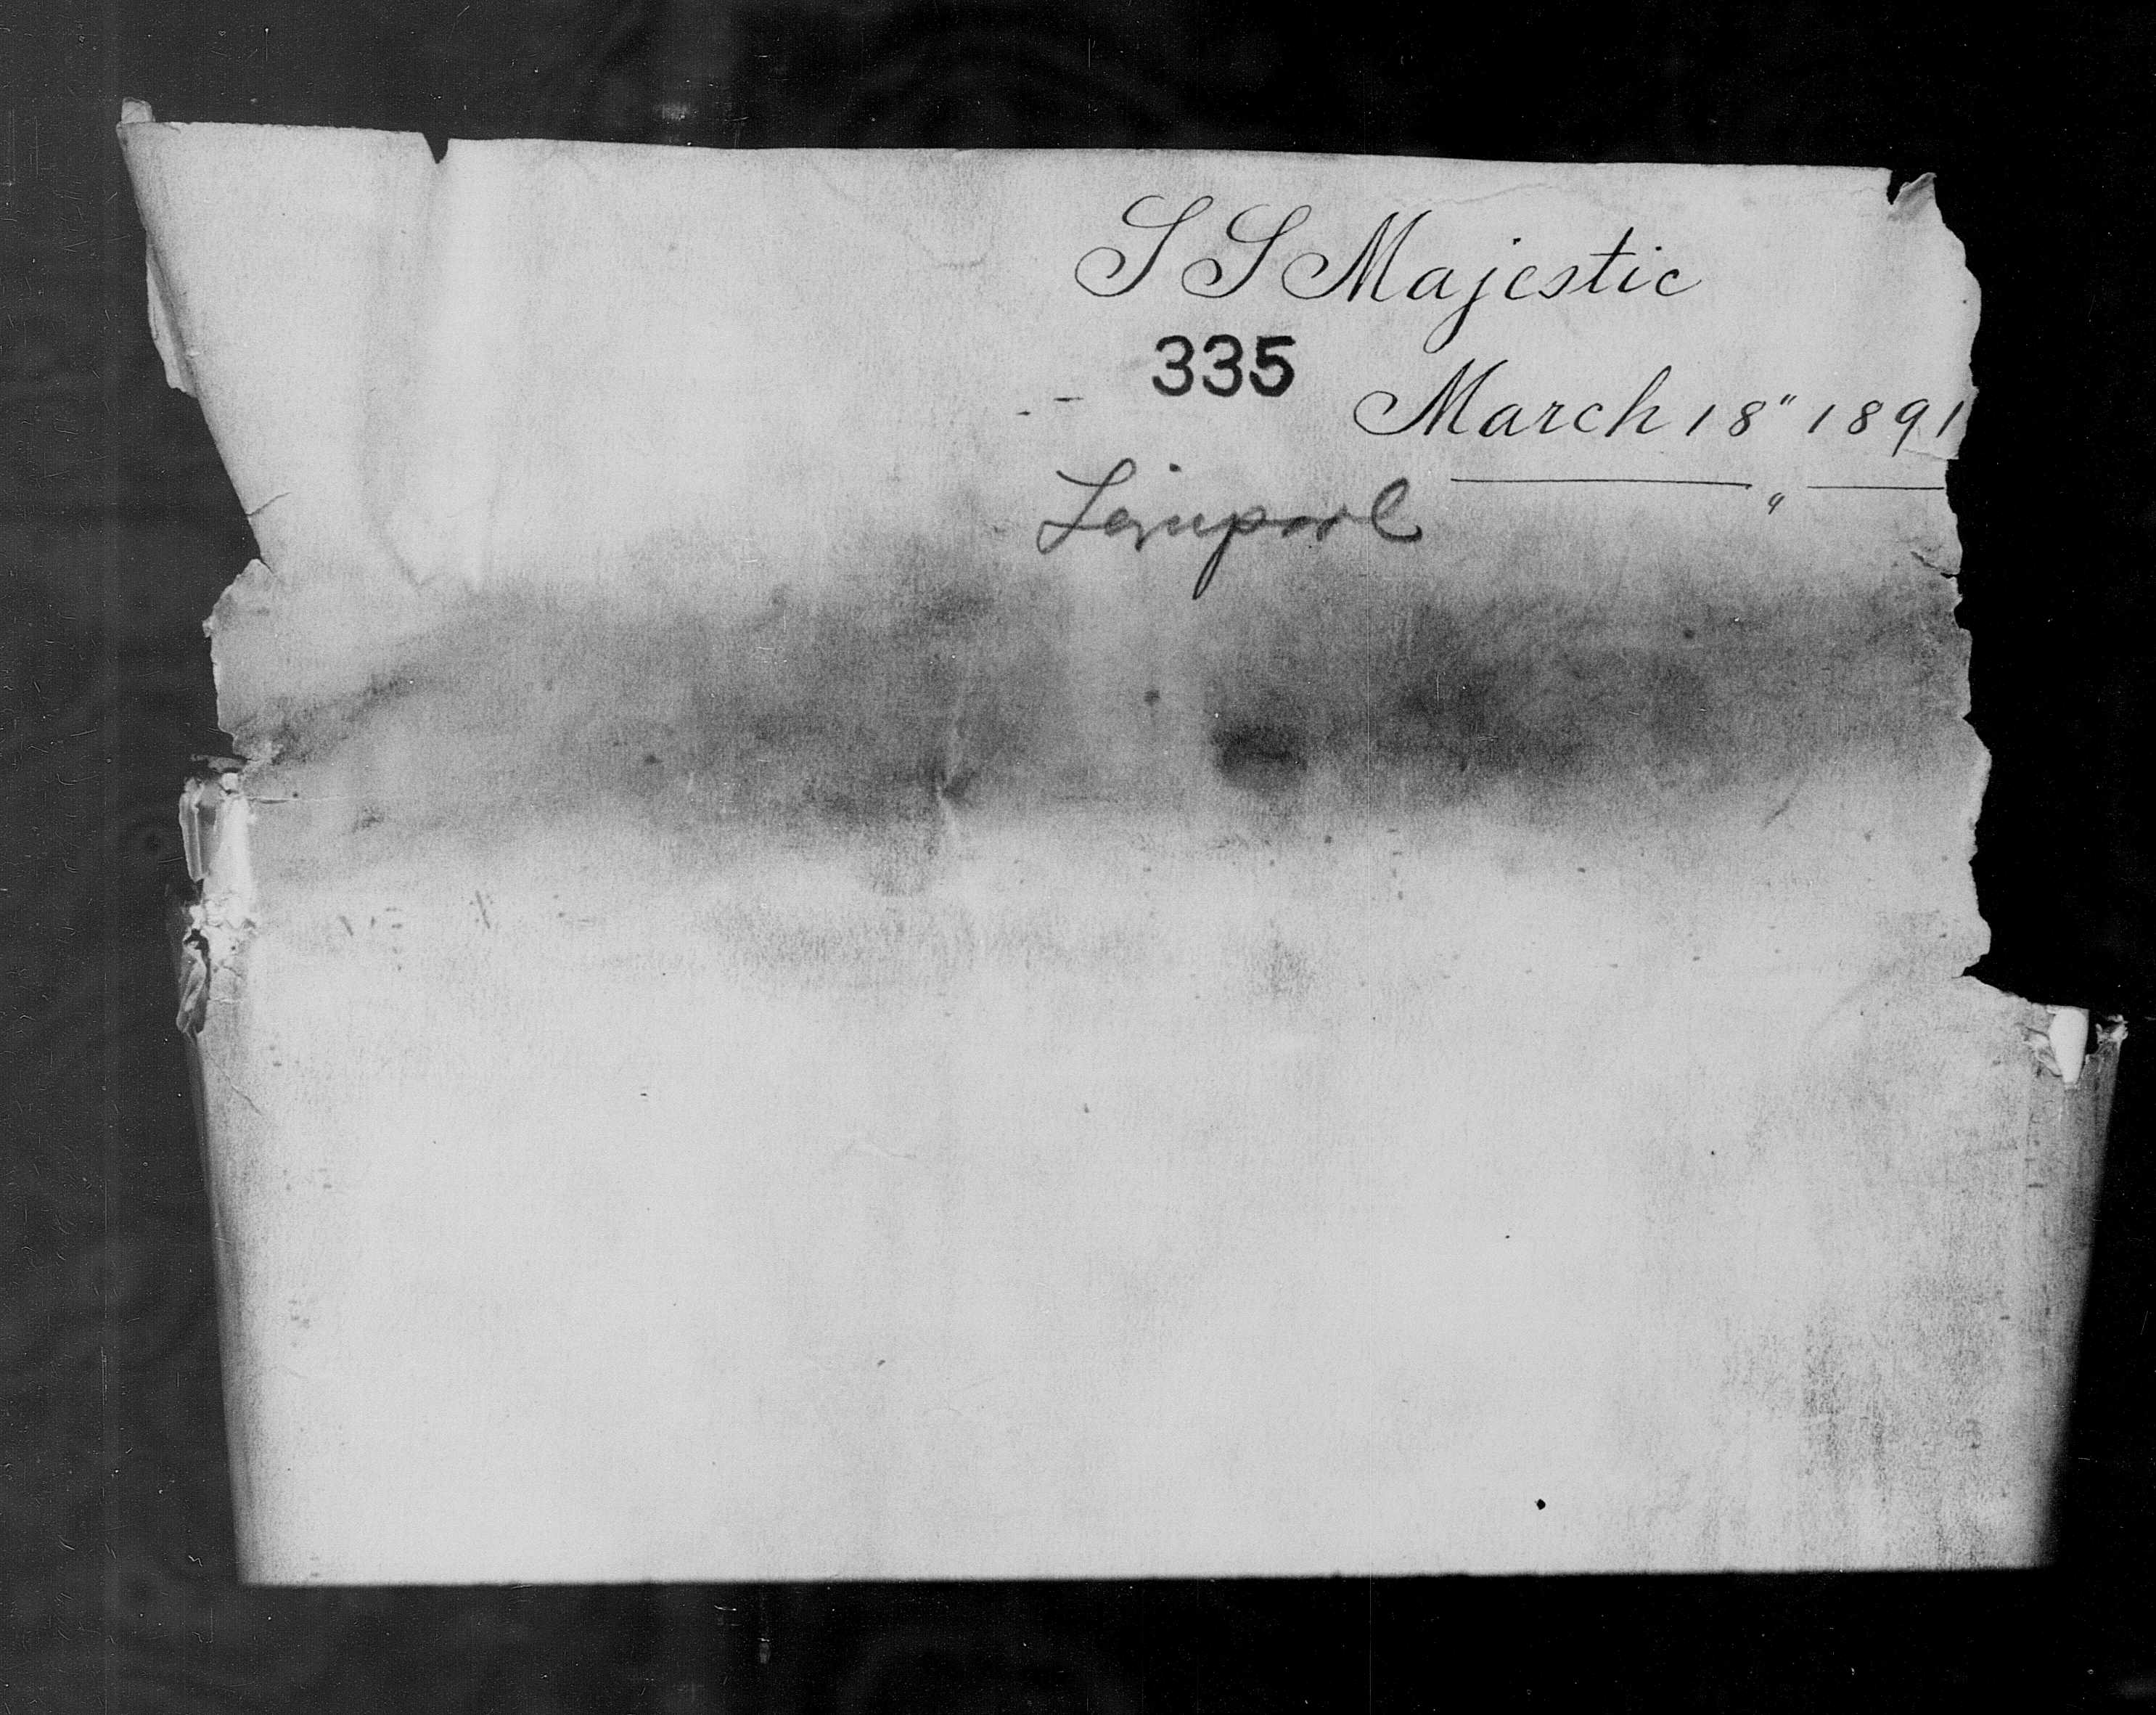 SS Majestic
335
March 18" 1891
"
Liverpool